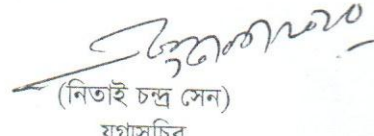 (নিতাই চন্দ্র সেন)
যুগ্মসচিব